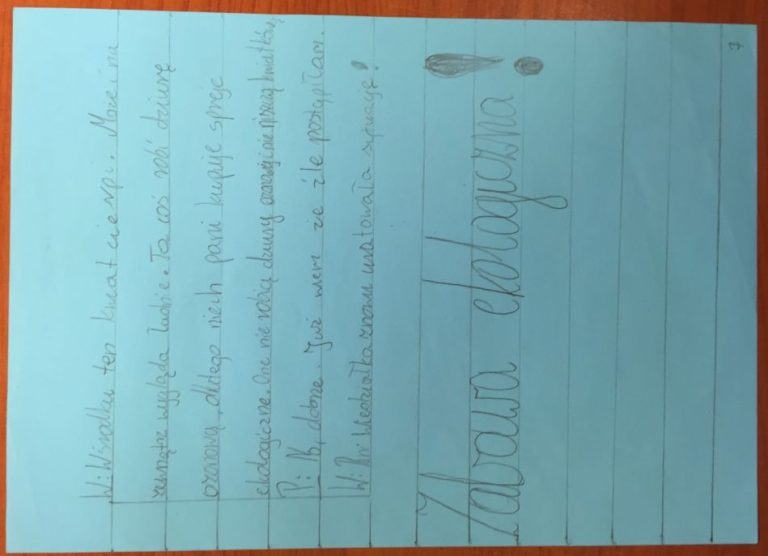 W: Wśrodku ten kwiat cierpi. Może i na
zewnątrz wygląda ładnie. To coś robi dziurę
ozonową, dlatego niech pani kupuje spreje
ekologiczne. One nie robią dziury ozonowej i nie niszczą kwiatków.
P: No, dobrze. Już wiem że źle postąpiłam.
W: znowu uratowała sytuację!
Zabawa ekologiczna!
7